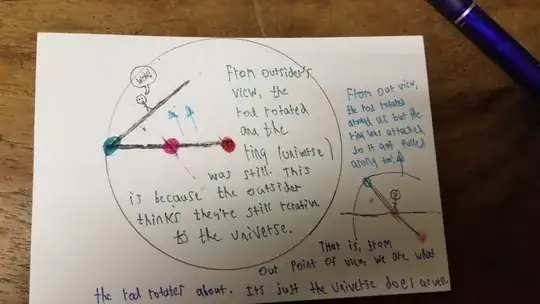 WOW!
From outsider's
view, the
rod rotated
and the
ring (universe)
was still. This
is because the outsider
thinks they're still relative
to the universe.
From our view,
the rod rotated
around us but the
ring was attached
so it got pulled
along too.
That is, from
our point of view, we are what
the rod rotates about. Its just the universe does as well.